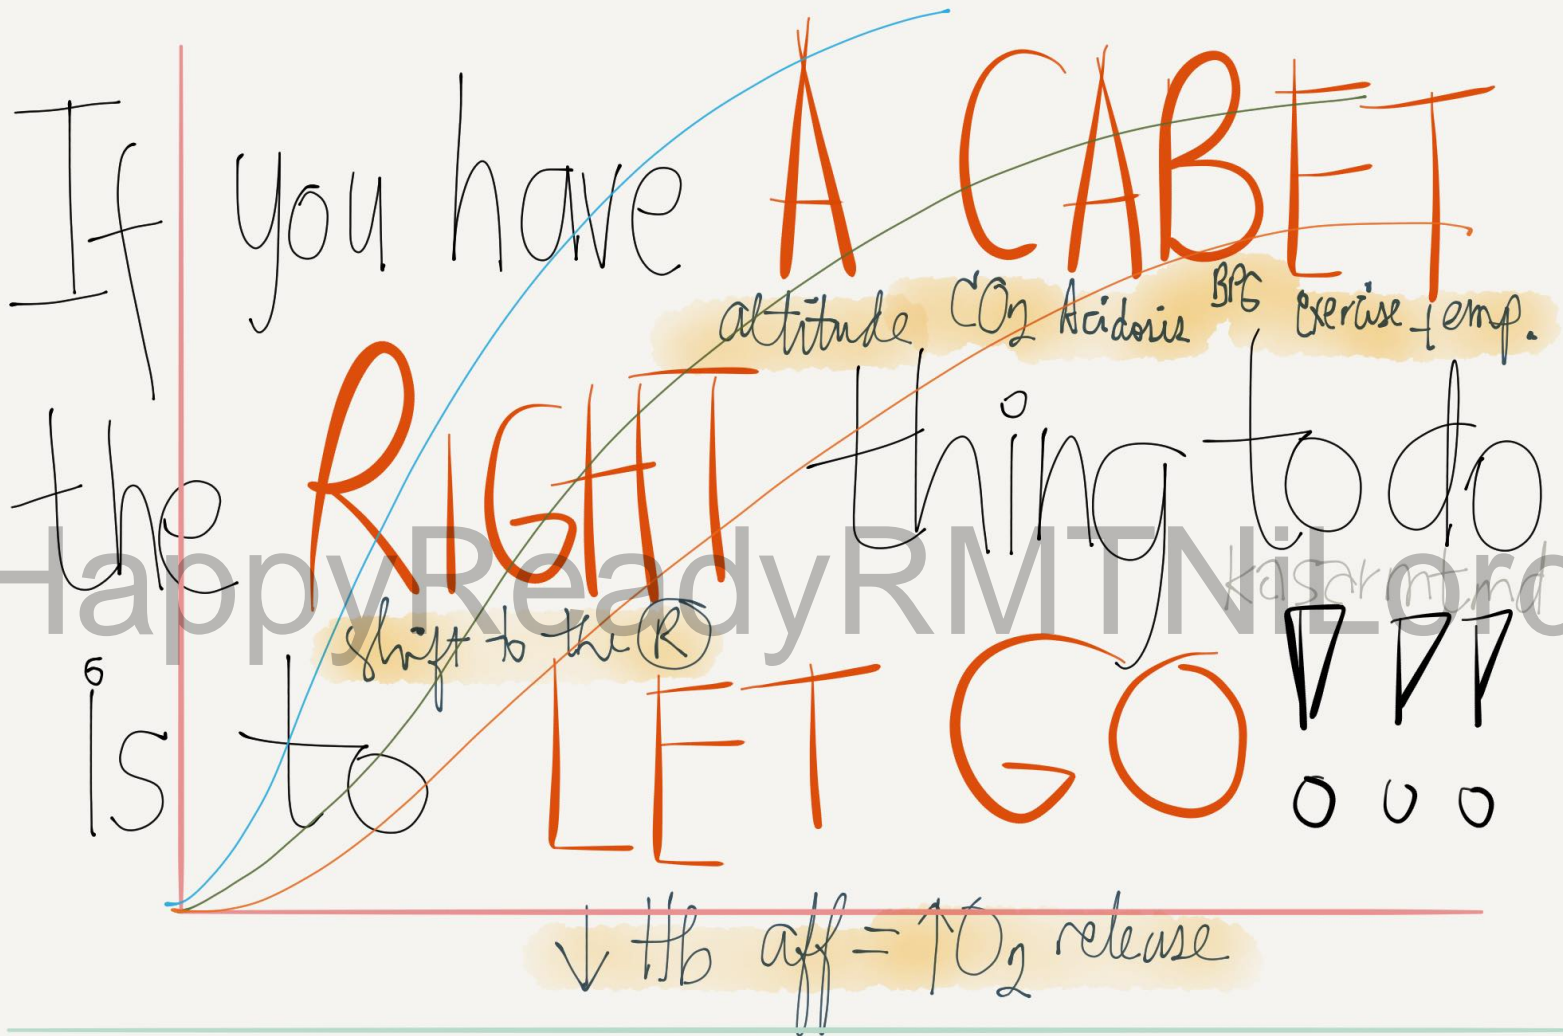 If you have A CABET
altitude CO2 Acidosis BPG exercise temp.
the RIGHT thing to do
HappyReadyRMTNiLord
kaisarmtmd
shift to the R
is to LET GO!!!
↓ Hb aff = ↑O2 release